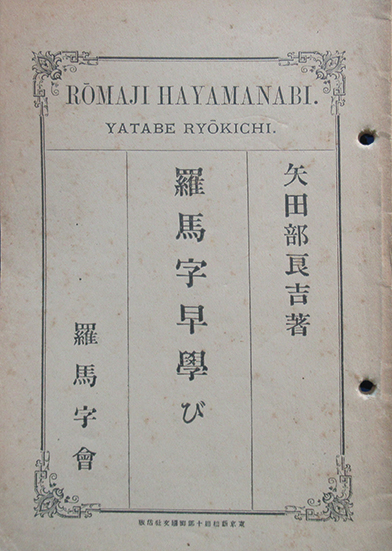 RŌMAJI HAYAMANABI.
YATABE RYŌKICHI.
矢田部良吉著
羅馬字早學び
羅馬字會